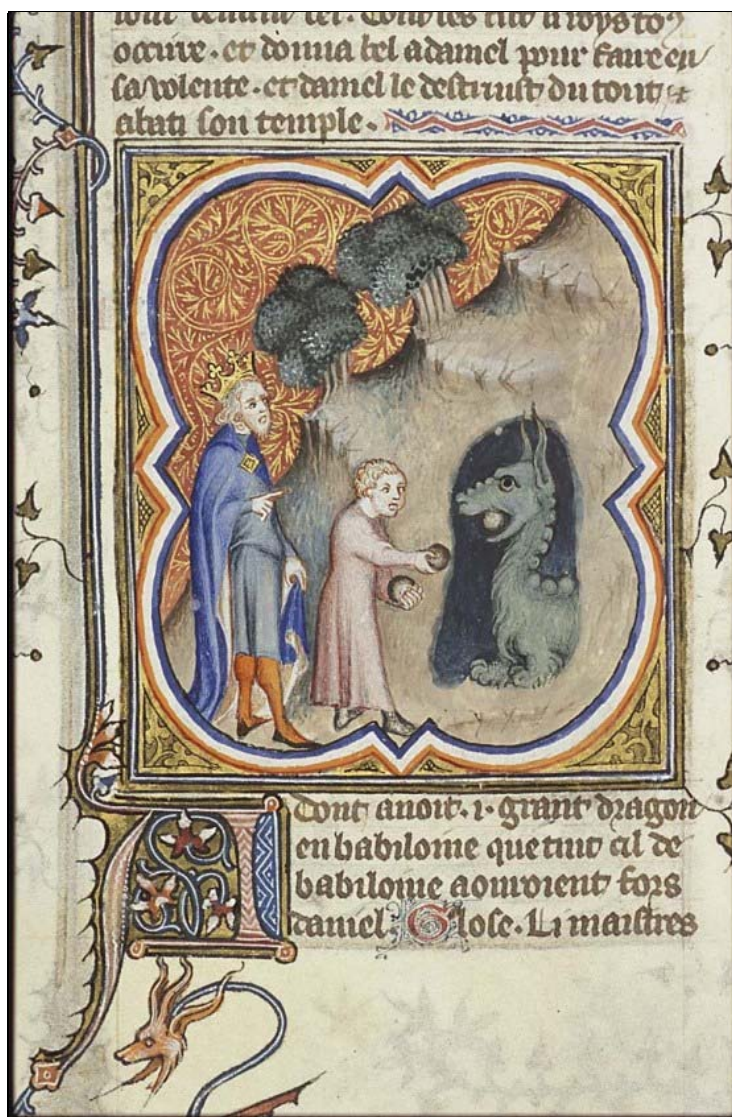 occire · et donna bel a daniel pour faire en
sa volente · et daniel le destruist du tout et
abati son temple ·
Adont auoit · i · grant dragon
en babilonie que tuit cil de
babilonie aouroient fors
daniel · Glose · Li maistres